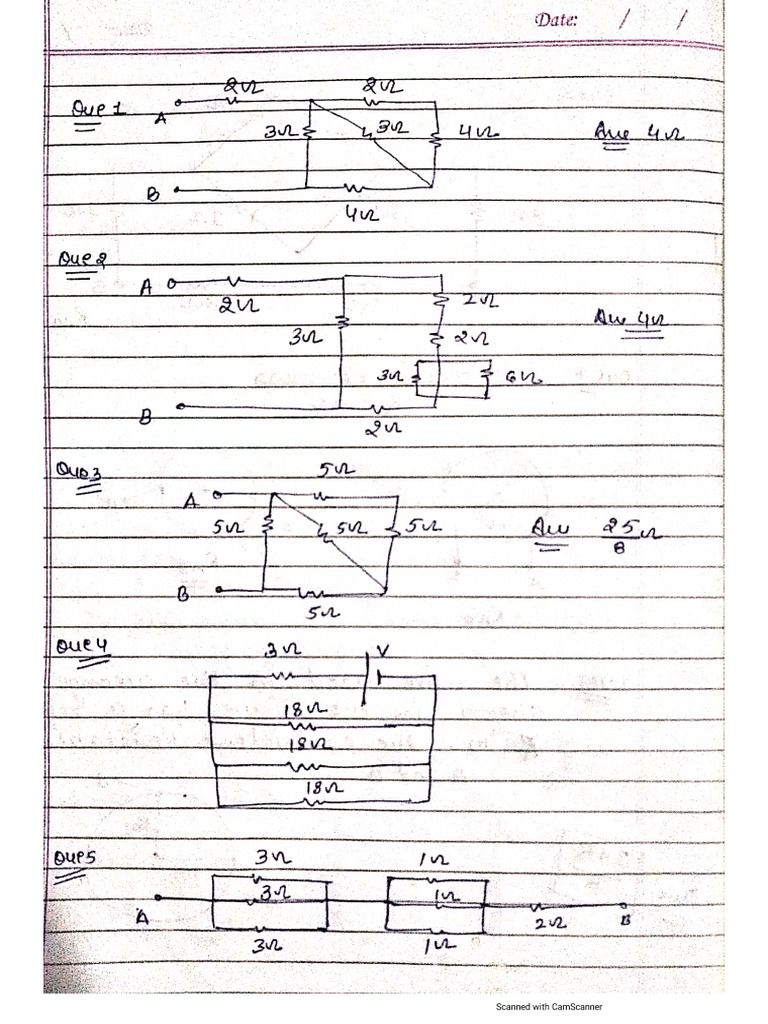 Date: / /
Que 1
A 2Ω 2Ω
3Ω 3Ω 4Ω Ans 4Ω
B
4Ω
Que 2
A
2Ω 2Ω
3Ω 2Ω Ans 4Ω
3Ω 6Ω
B
2Ω
Que 3
5Ω
A
5Ω 5Ω 5Ω Ans 25Ω
8
B
5Ω
Que 4
3Ω V
18Ω
18Ω
18Ω
Que 5
3Ω 1Ω
3Ω 1Ω
A 2Ω B
3Ω 1Ω
Scanned with CamScanner